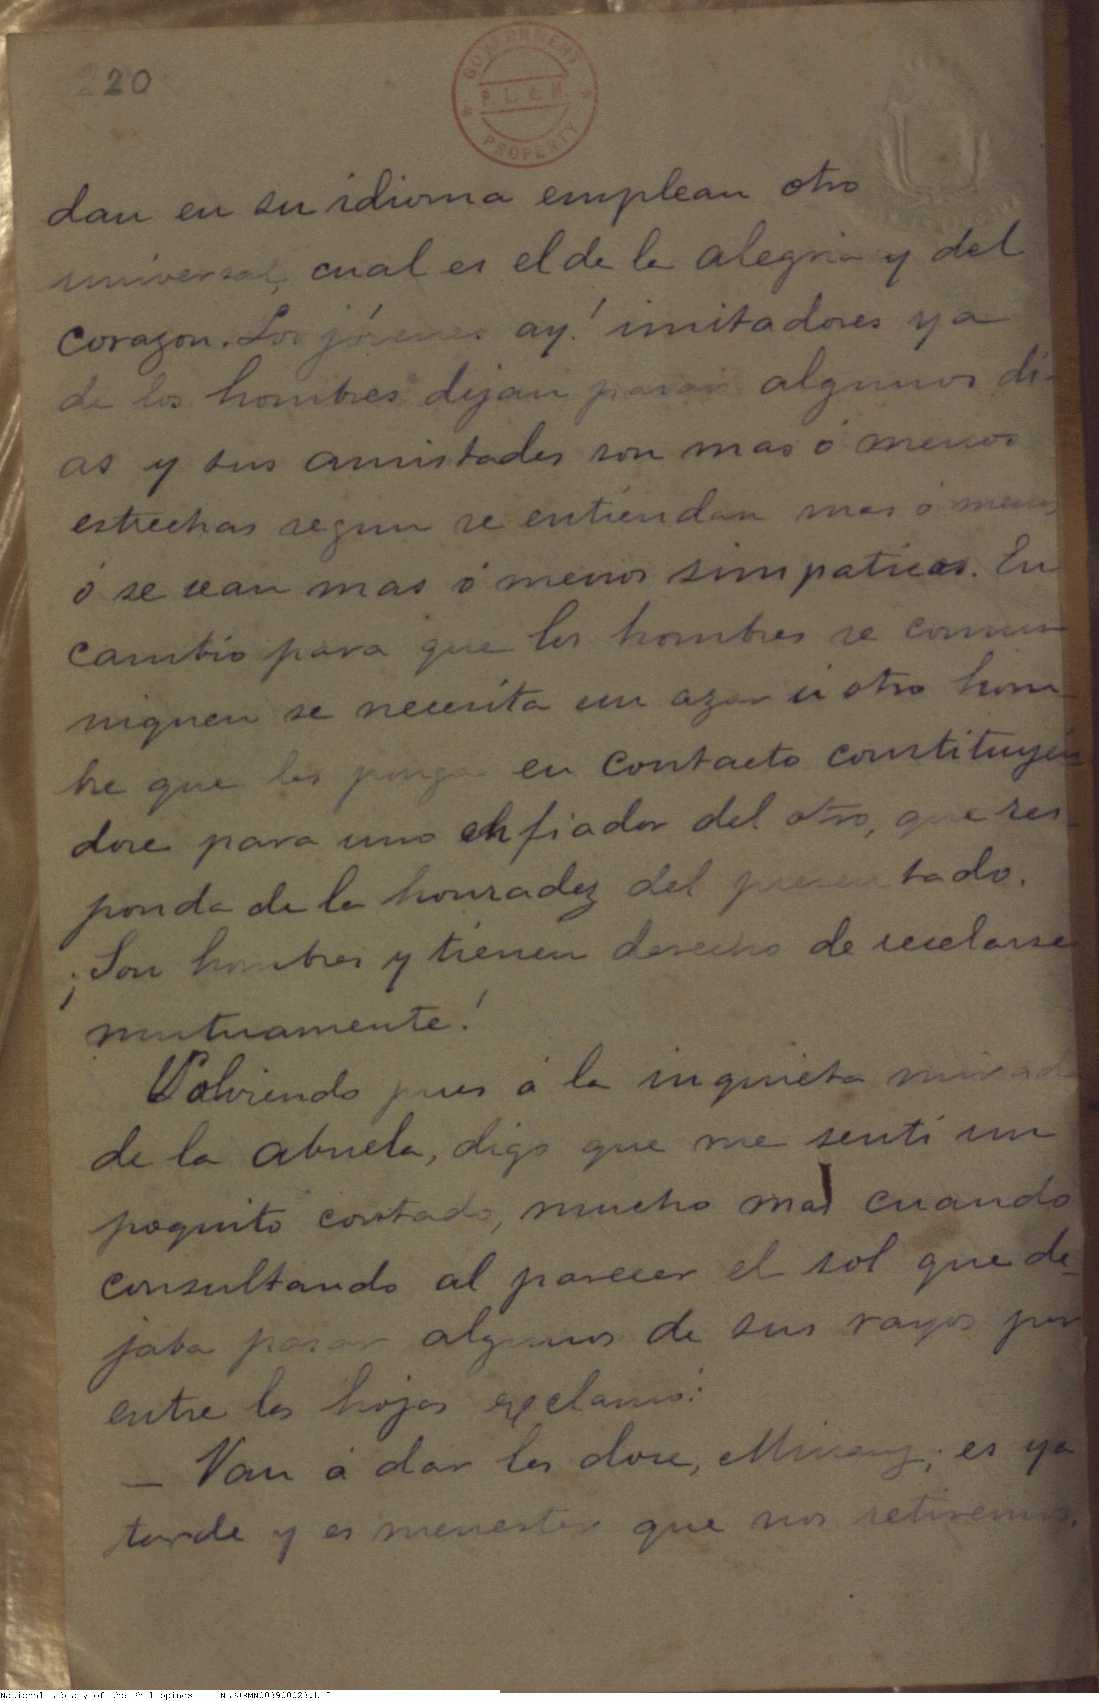 220
GOVERNMENT
P. L. & M.
PROPERTY
dan en su idioma emplean otro
universal, cual es el de la alegria y del
corazon. Los jóvenes ay! imitadores ya
de los hombres dejan pasar algunos di-
as y sus amistades son mas ó menos
estrechas segun se entiendan mas ó menos
ó se sean mas ó menos simpaticos. En
cambio para que los hombres se comu-
niquen se necesita un azar ú otro hom-
bre que los ponga en contacto constituyén
dose para uno en fiador del otro, que res-
ponda de la honradez del presentado.
¡Son hombres y tienen derecho de recelarse
mutuamente!
Volviendo pues á la inquieta mirada
de la abuela, digo que me sentí un
poquito cortado, mucho mas cuando
consultando al parecer el sol que de-
jaba pasar algunos de sus rayos por
entre las hojas exclamó:
— Van á dar las doce, Minang; es ya
tarde y es menester que nos retiremos.
National Library of the Philippines